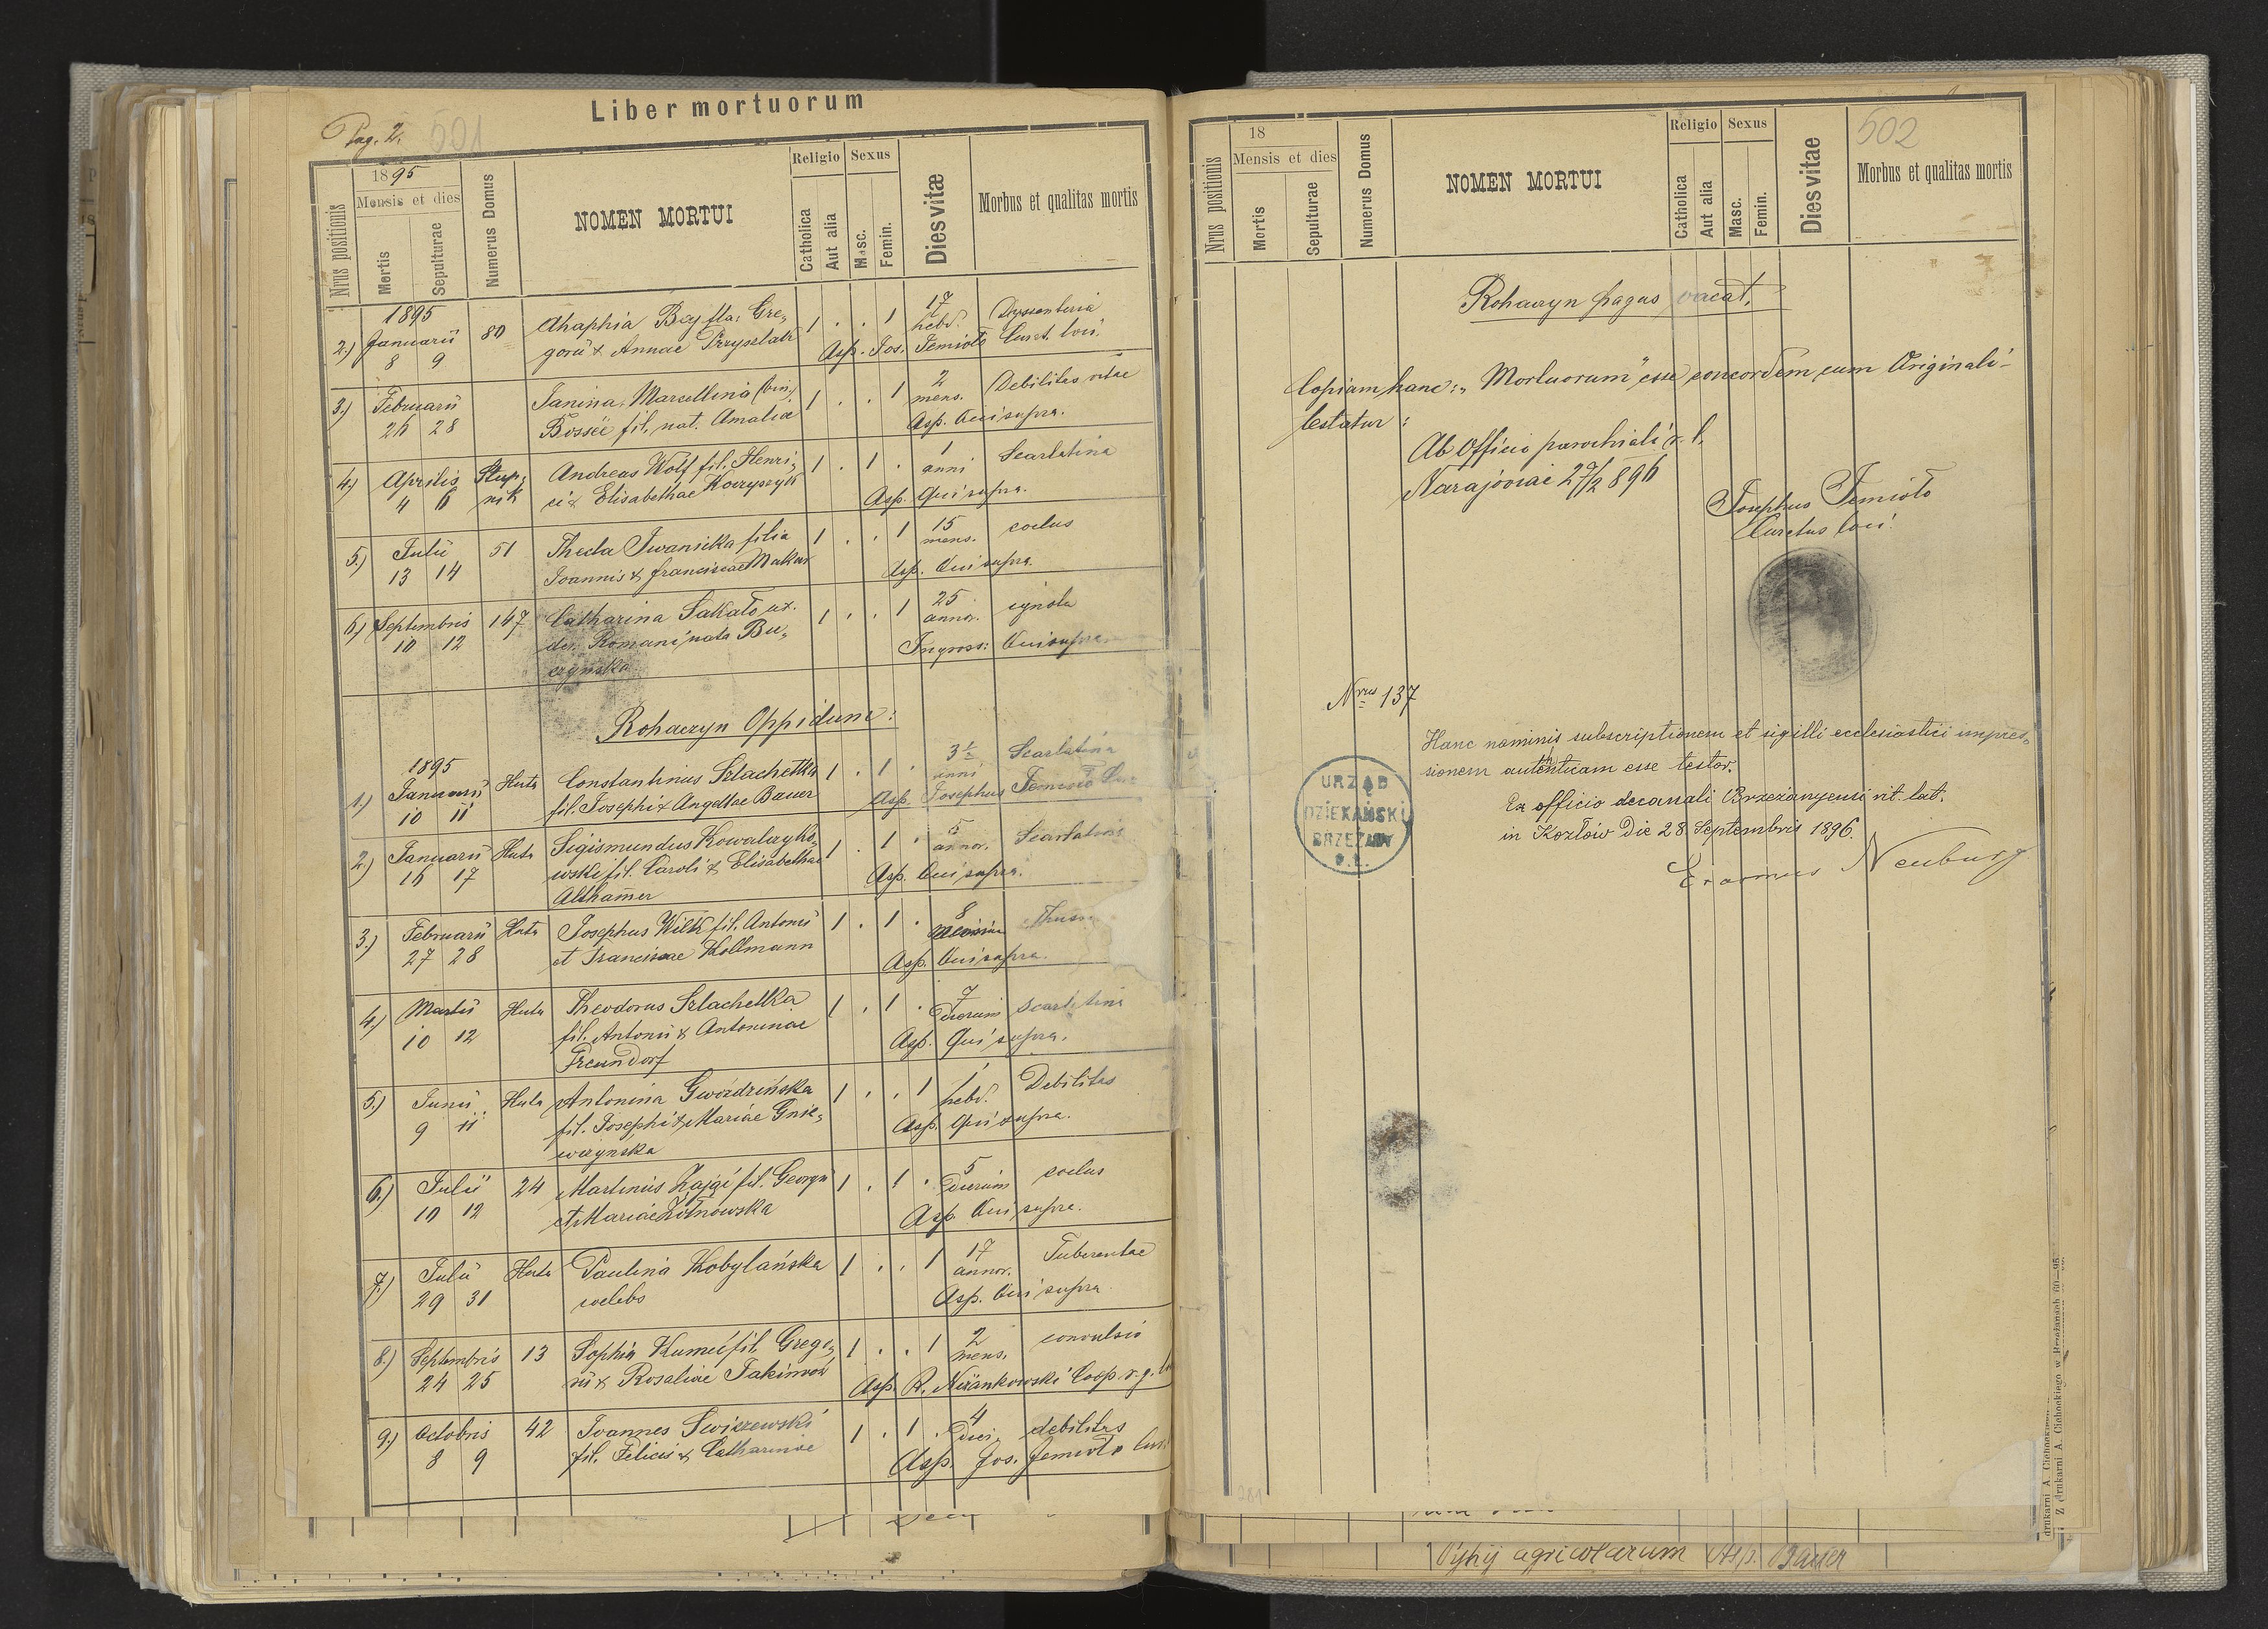 Liber mortuorum
Pag. 2.
501
Nrus positionis
1895
Mensis et dies
Mortis
Sepulturae
Numerus Domus
NOMEN MORTUI
Religio
Catholica
Aut alia
Sexus
Masc.
Femin.
Dies vitæ
Morbus et qualitas mortis
1895
2.) Januarii 80 Ahaphia Bey fla: Gre= 1 . . 1 17 hebd. Dyssenteria
8 9 gorii & Annae Przyszlak Asp. Jos. Jemioło Curat. loci.
3.) Februarii Janina, Marcellina (bin.) 1 . . 1 2 mens. Debilitas vitae
26 28 Bossée fil. nat. Amaliae Asp. Qui supra.
4.) Aprilis Stup= Andreas Wolf fil. Henri= 1 . 1 . 1 anni Scarlatina
4 6 nik ci & Elisabethae Koczyszyk Asp. Qui supra.
5.) Julii 51 Thecla Iwanicka filia 1 . . 1 15 mens. coclus
13 14 Joannis & Franciscae Makar Asp. Qui supra.
6.) Septembris 147 Catharina Sakało ux. 1 . . 1 25 annor. ignota
10 12 der. Romani nata Bu= Ingross: Qui supra
czynska
Rohaczyn Oppidum:
1895
1.) Januarii Huta Constantinus Szlachetka 1 . 1 . 3½ anni Scarlatina
10 11 fil. Josephi & Angellae Bauer Asp. Josephus Jemioło Cur
2.) Januarii Huta Sigismundus Kowalczyko= 1 . 1 . 5 annor. Scarlatina
16 17 wski fil. Caroli & Elisabethae Asp. Qui supra.
Althamer
3.) Februarii Huta Josephus Wilk fil. Antonii 1 . 1 . 8
27 28 et Franciscae Kollmann Asp. Qui supra.
4.) Martii Huta Theodorus Szlachetka 1 . 1 . 7 dierum Scarlatina
10 12 fil. Antonii & Antoninae Asp. Qui supra.
Freundorf
5.) Junii Huta Antonina Gwoździńska 1 . . 1 1 hebd. Debilitas
9 11 fil. Josephi & Mariae Gnie= Asp. Qui supra.
wczynska
6.) Julii 24 Martinus Zając fil. Georgii 1 . 1 . 5 dierum coclus
10 12 et Mariae Żółnowska Asp. Qui supra.
7.) Julii Huta Paulina Kobylańska 1 . . 1 17 annor. Tuberculae
29 31 coelebs Asp. Qui supra
8.) Septembris 13 Sophia Kumeć fil. Grego= 1 . . 1 2 mens. convulsio
24 25 rii & Rosaliae Jakimów Asp. R. Niżankowski Coop. r. g.
9.) Octobris 42 Joannes Swiszewski 1 . 1 . 4 diei debilitas
8 9 fil. Felicis & Catharinae Asp. Jos. Jemioło Cur.
502
Nrus positionis
18
Mensis et dies
Mortis
Sepulturae
Numerus Domus
NOMEN MORTUI
Religio
Catholica
Aut alia
Sexus
Masc.
Femin.
Dies vitae
Morbus et qualitas mortis
Rohaczyn pagus vacat.
Copiam hanc: "Mortuorum" esse concordem cum Originali
testatur:
Ab Officio parochiali r. l.
Narajoviae 27/2 896
Josephus Jemioło
Curatus loci.
Nrus 137
Hanc nominis subscriptionem et sigilli ecclesiastici impres=
sionem authenticam esse testor.
Ex officio decanali Brzeżanyensi rit. lat.
in Kozłów Die 28. Septembris 1896.
Erasmus Neuburg
URZĄD
DZIEKAŃSKI
BRZEŻANY
281
Z drukarni A. Cichockiego w Brzeżanach
agricolarum Asp. Bauer